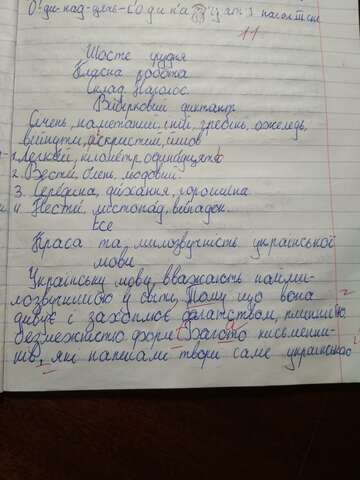 11
Шосте грудня
Класна робота
Склад. Наголос.
Вибірковий диктант
Олень, наметаний, іній, гребінь, ожеледь,
війнути, іскристий, йшов
1. Легкий, кілометр, одинадцять
2. Вести, олень, людовий
3. Середина, дихання, горошина
4. Нести, листопад, випадок.
все
Краса та милозвучність української
мови
Українську мову вважають найми-
лозвучнішою у світі. Тому що вона
дивує і захоплює багатством, пишністю
безмежністю форм. Багато письменни-
ків, які написали твори саме українською